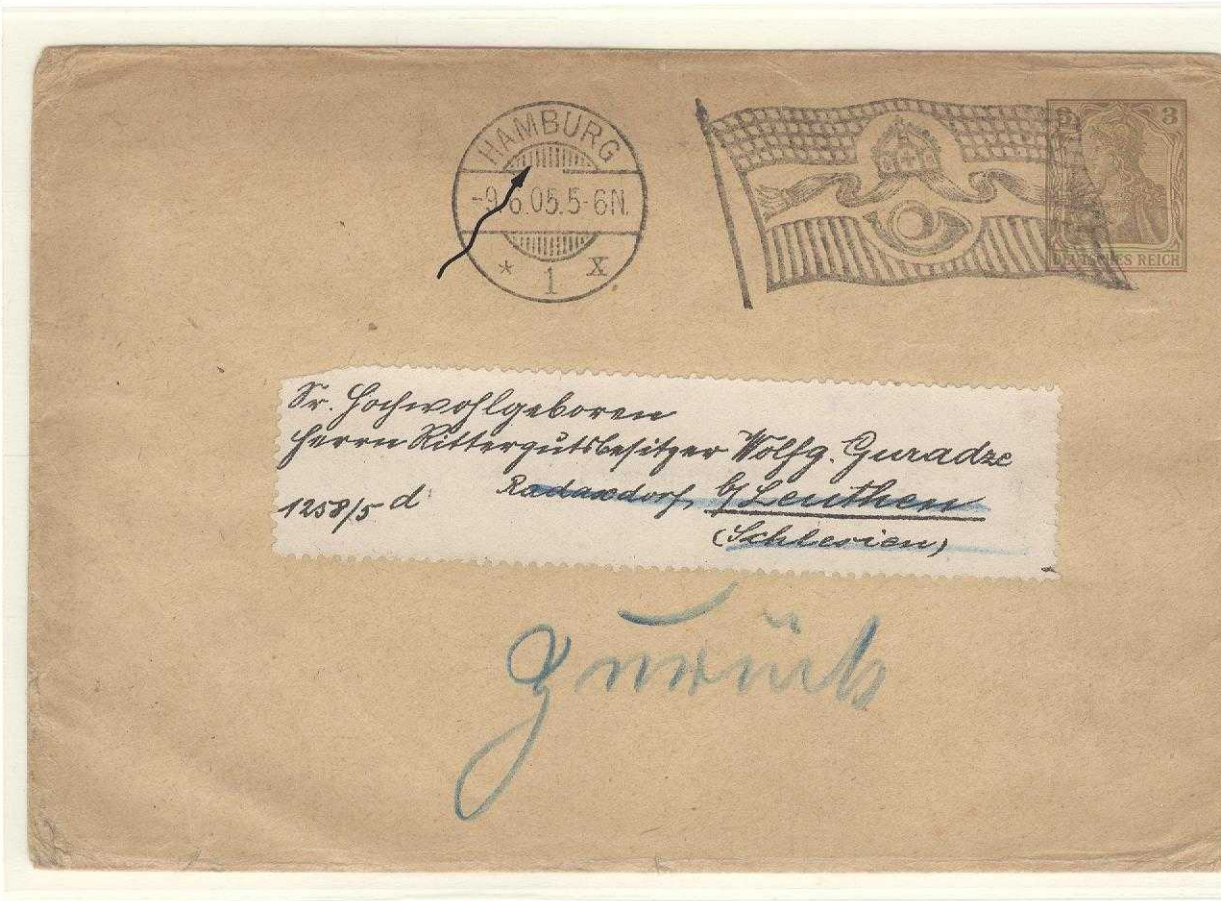 HAMBURG
-9.6.05.5-6N.
* 1 X
3 3
DEUTSCHES REICH
Sr. Hochwohlgeboren
Herrn Rittergutsbesitzer Wolfg. Guradze
1258/5 d Radaxdorf, b/ Leuthen
(Schlesien)
Zurück